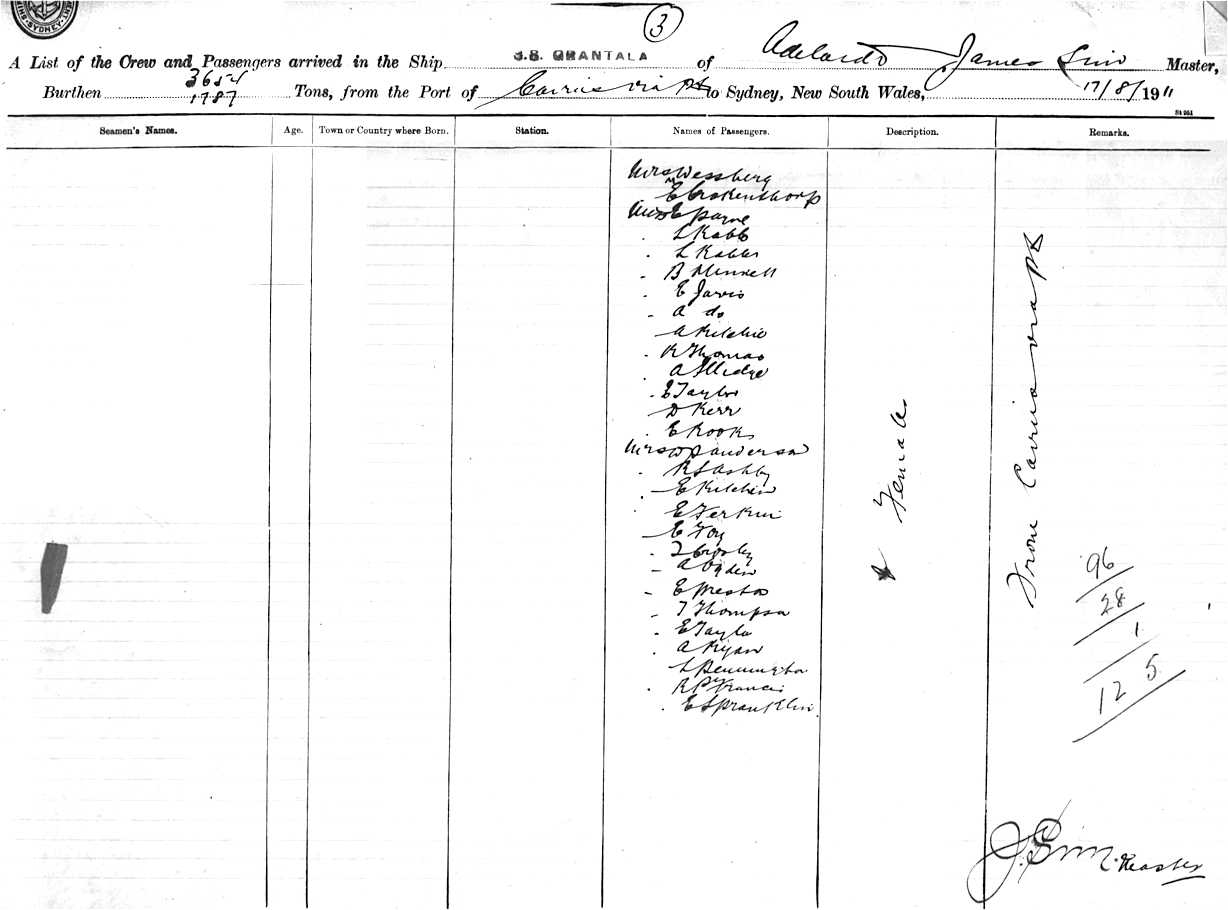 SYDNEY
3
A List of the Crew and Passengers arrived in the Ship S.S. GRANTALA of Adelaide James Sim Master,
Burthen 3654 1787 Tons, from the Port of Cairns via Pts to Sydney, New South Wales, 17/8/1911
St 261
Seamen's Names. Age. Town or Country where Born. Station. Names of Passengers. Description. Remarks.
Mrs Wessberg
E
Miss E Payne
L Rabb
L Rabbs
B Minnett
E Jarvis
A do
A Kitchin
R Thomas
A Slledge
E Taylor
D Kerr
E Rooks
Mrs W Sanderson
R S Ashby
E Kitchin
E Ferkin
E Foy
Crosby
A Ogden
E Preston
T Thompson
E Taylor
A Ryan
L Pennington
R P Francis
E Spranklin
Female
From Cairns via Pts
96
28
1
125
J. Sim Master